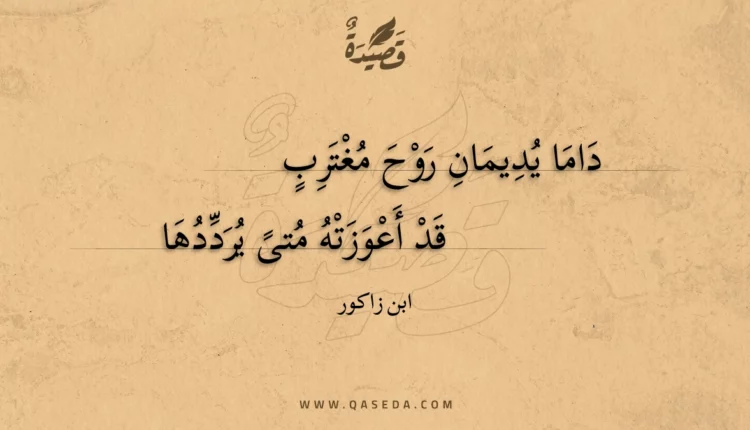 قَصِيدَةٌ
دَامَا يُدِيمَانِ رَوْحَ مُغْتَرِبٍ
قَدْ أَعْوَزَتْهُ مُتىً يُرَدِّدُهَا
ابن زاكور
WWW.QASEDA.COM